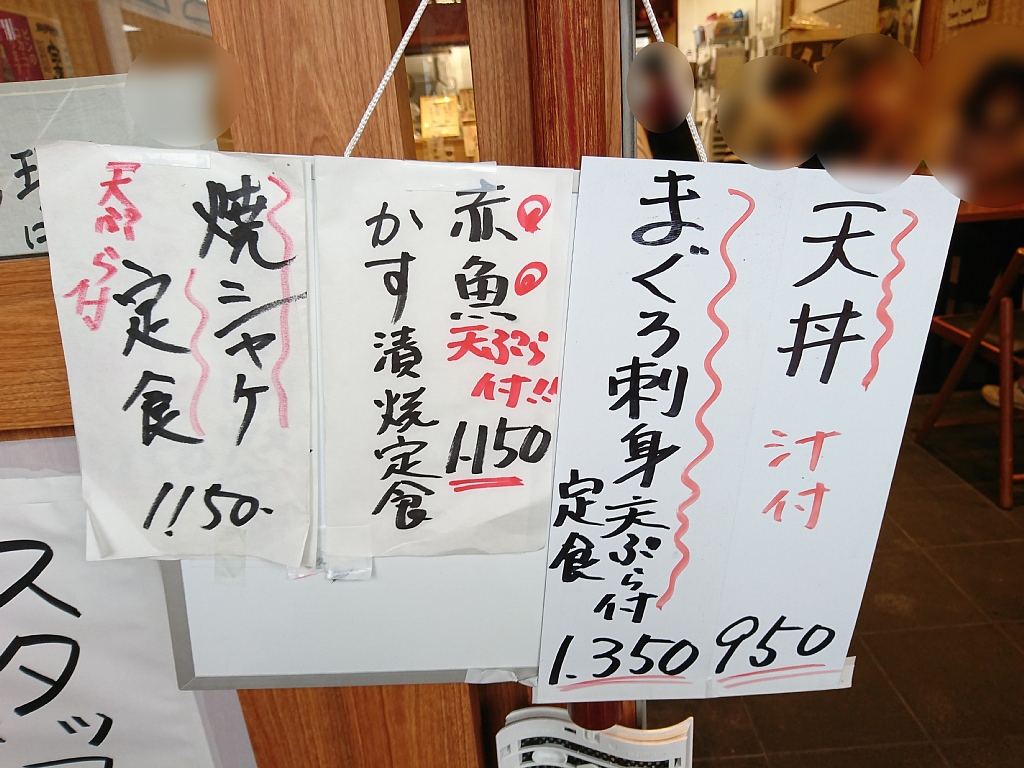 天丼
汁付
950
まぐろ刺身天ぷら付
定食
1.350
赤魚
天ぷら
付!!
1.150
かす漬焼定食
焼シャケ
定食
天ぷら付
1150.
スタッフ